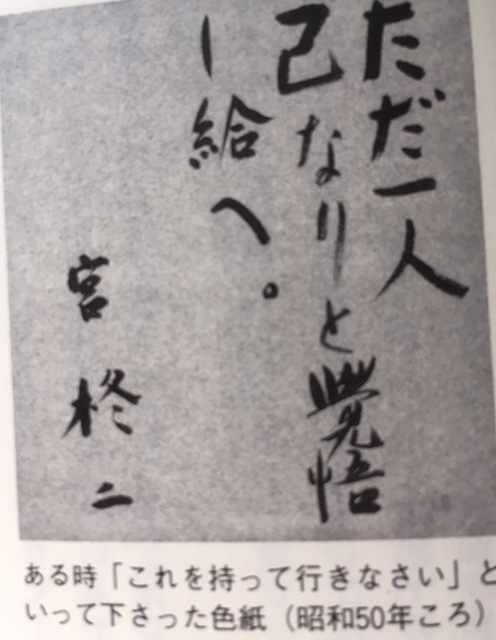 ただ一人
己なりと覺悟
し給へ。
宮柊二
ある時「これを持って行きなさい」と
いって下さった色紙（昭和50年ころ）